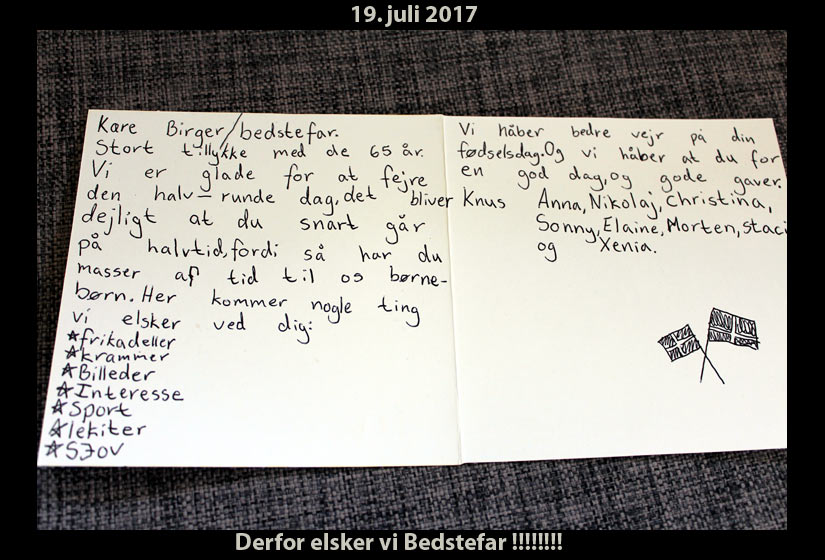 19. juli 2017
Kære Birger/bedstefar.
Stort tillykke med de 65 år.
Vi er glade for at fejre
den halv-runde dag, det bliver
dejligt at du snart går
på halvtid, fordi så har du
masser af tid til os børne-
børn. Her kommer nogle ting
vi elsker ved dig:
*frikadeller
*krammer
*Billeder
*Interesse
*Sport
*lekiter
*SJOV
Vi håber bedre vejr på din
fødselsdag. Og vi håber at du for
en god dag, og gode gaver.
Knus Anna, Nikolaj, Christina,
Sonny, Elaine, Morten, staci
og Xenia.
Derfor elsker vi Bedstefar !!!!!!!!